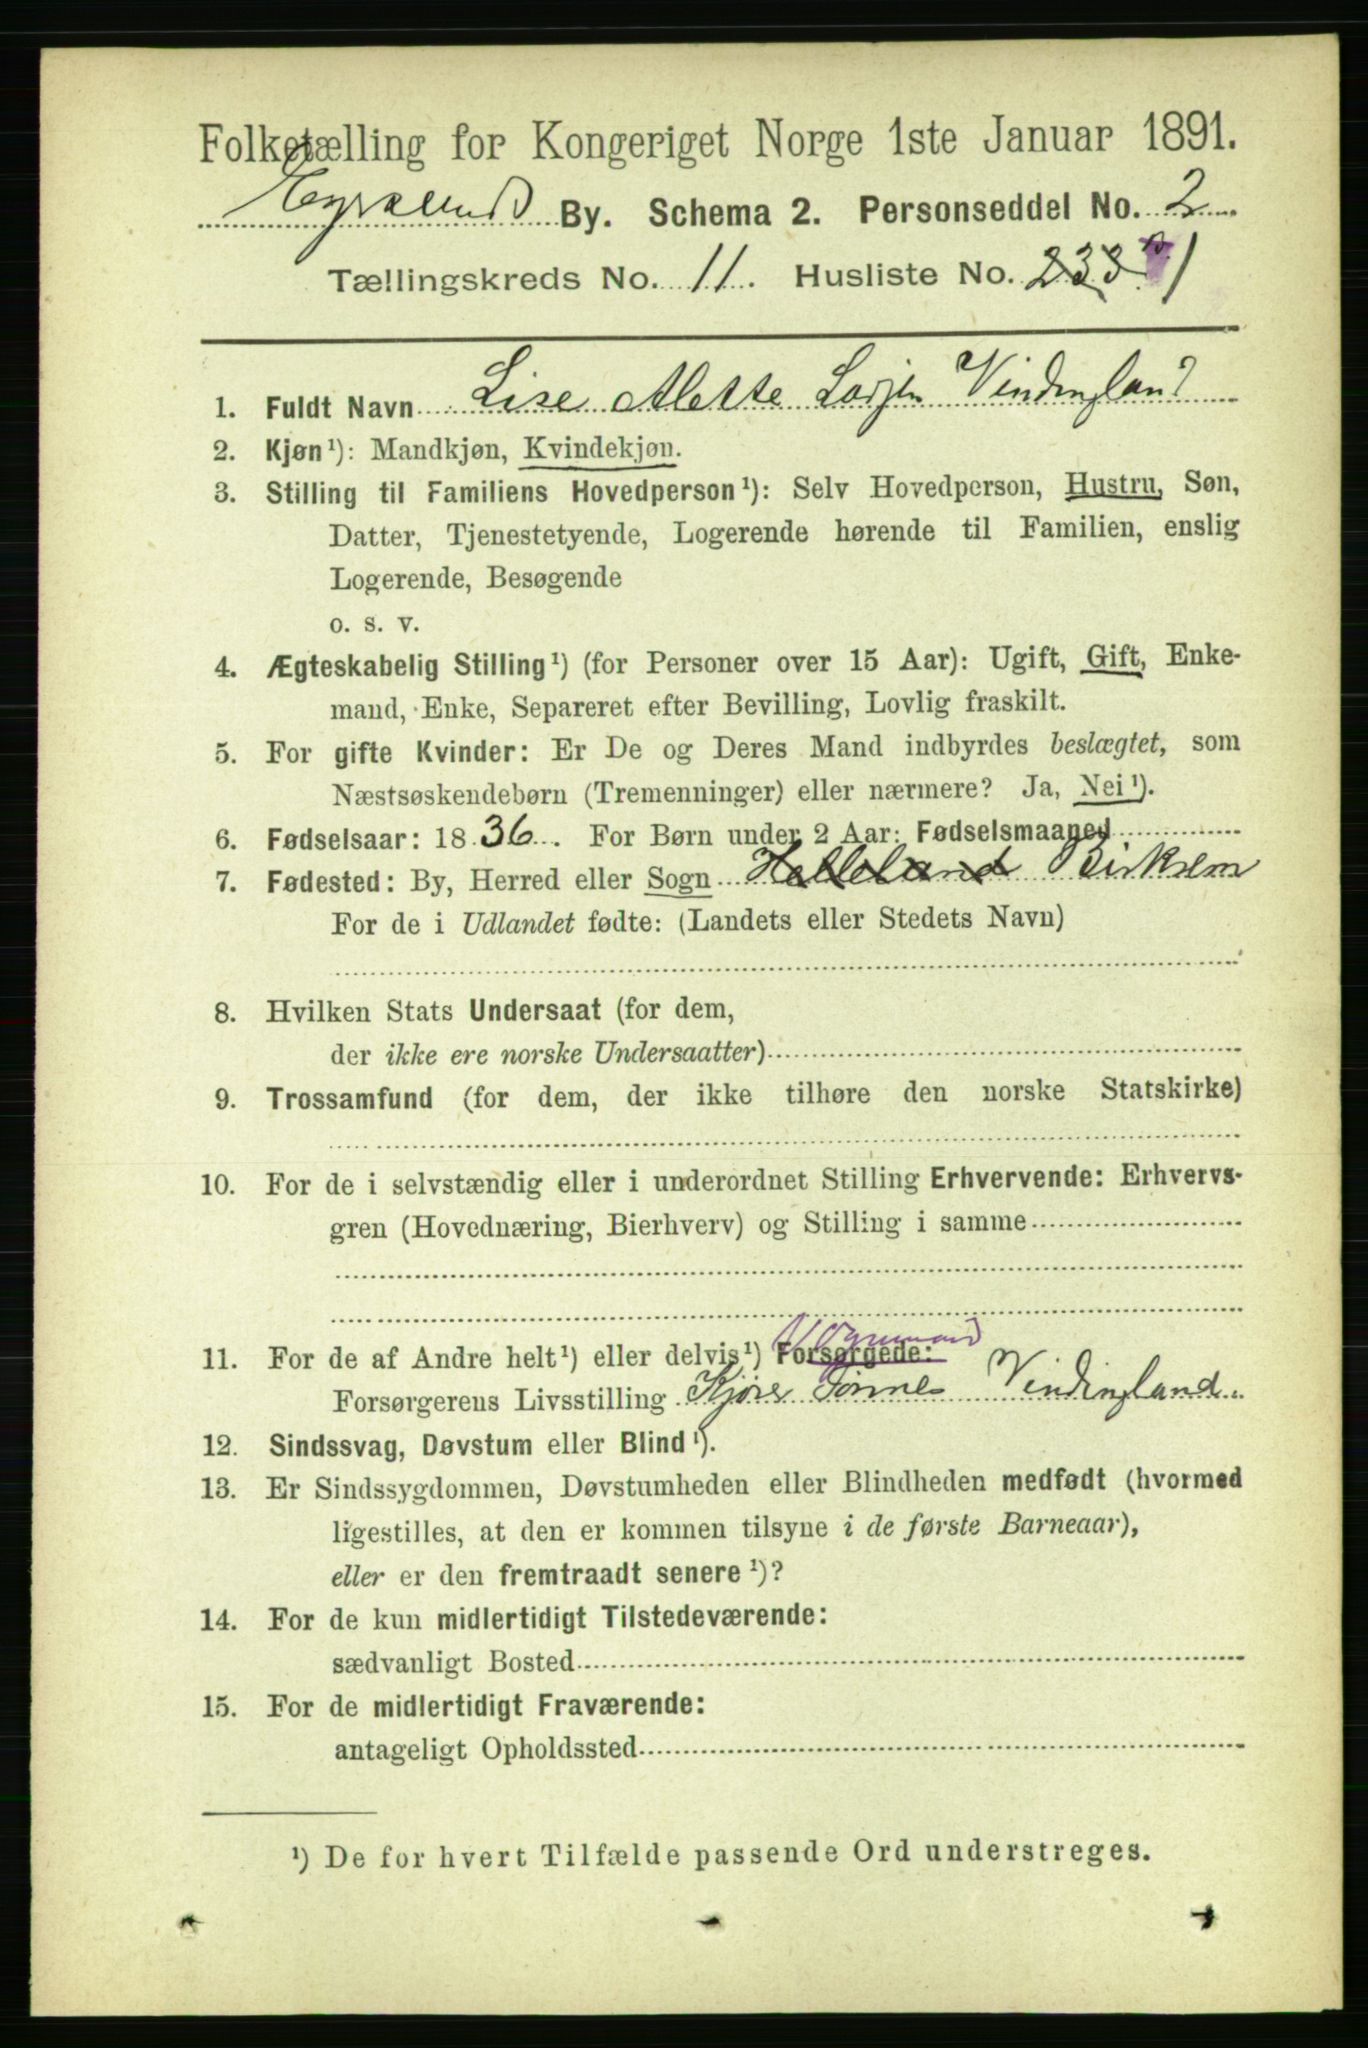 Folketælling for Kongeriget Norge 1ste Januar 1891.
By. Schema 2. Personseddel No. 2
Tællingskreds No. 11. Husliste No. 233 1
1. Fuldt Navn Lise Mette Vindingland
2. Kjøn¹): Mandkjøn, Kvindekjøn.
3. Stilling til Familiens Hovedperson¹): Selv Hovedperson, Hustru, Søn,
Datter, Tjenestetyende, Logerende hørende til Familien, enslig
Logerende, Besøgende
o. s. v.
4. Ægteskabelig Stilling¹) (for Personer over 15 Aar): Ugift, Gift, Enke-
mand, Enke, Separeret efter Bevilling, Lovlig fraskilt.
5. For gifte Kvinder: Er De og Deres Mand indbyrdes beslægtet, som
Næstsøskendebørn (Tremenninger) eller nærmere? Ja, Nei¹).
6. Fødselsaar: 1836. For Børn under 2 Aar: Fødselsmaaned
7. Fødested: By, Herred eller Sogn Helleland Birkrem
For de i Udlandet fødte: (Landets eller Stedets Navn)
8. Hvilken Stats Undersaat (for dem,
der ikke ere norske Undersaatter)
9. Trossamfund (for dem, der ikke tilhøre den norske Statskirke)
10. For de i selvstændig eller i underordnet Stilling Erhvervende: Erhvervs-
gren (Hovednæring, Bierhverv) og Stilling i samme
Vognmand
11. For de af Andre helt¹) eller delvis¹) Forsørgede:
Forsørgerens Livsstilling Kjører Tønnes Vindingland
12. Sindssvag, Døvstum eller Blind¹).
13. Er Sindssygdommen, Døvstumheden eller Blindheden medfødt (hvormed
ligestilles, at den er kommen tilsyne i de første Barneaar),
eller er den fremtraadt senere¹)?
14. For de kun midlertidigt Tilstedeværende:
sædvanligt Bosted
15. For de midlertidigt Fraværende:
antageligt Opholdssted
¹) De for hvert Tilfælde passende Ord understreges.